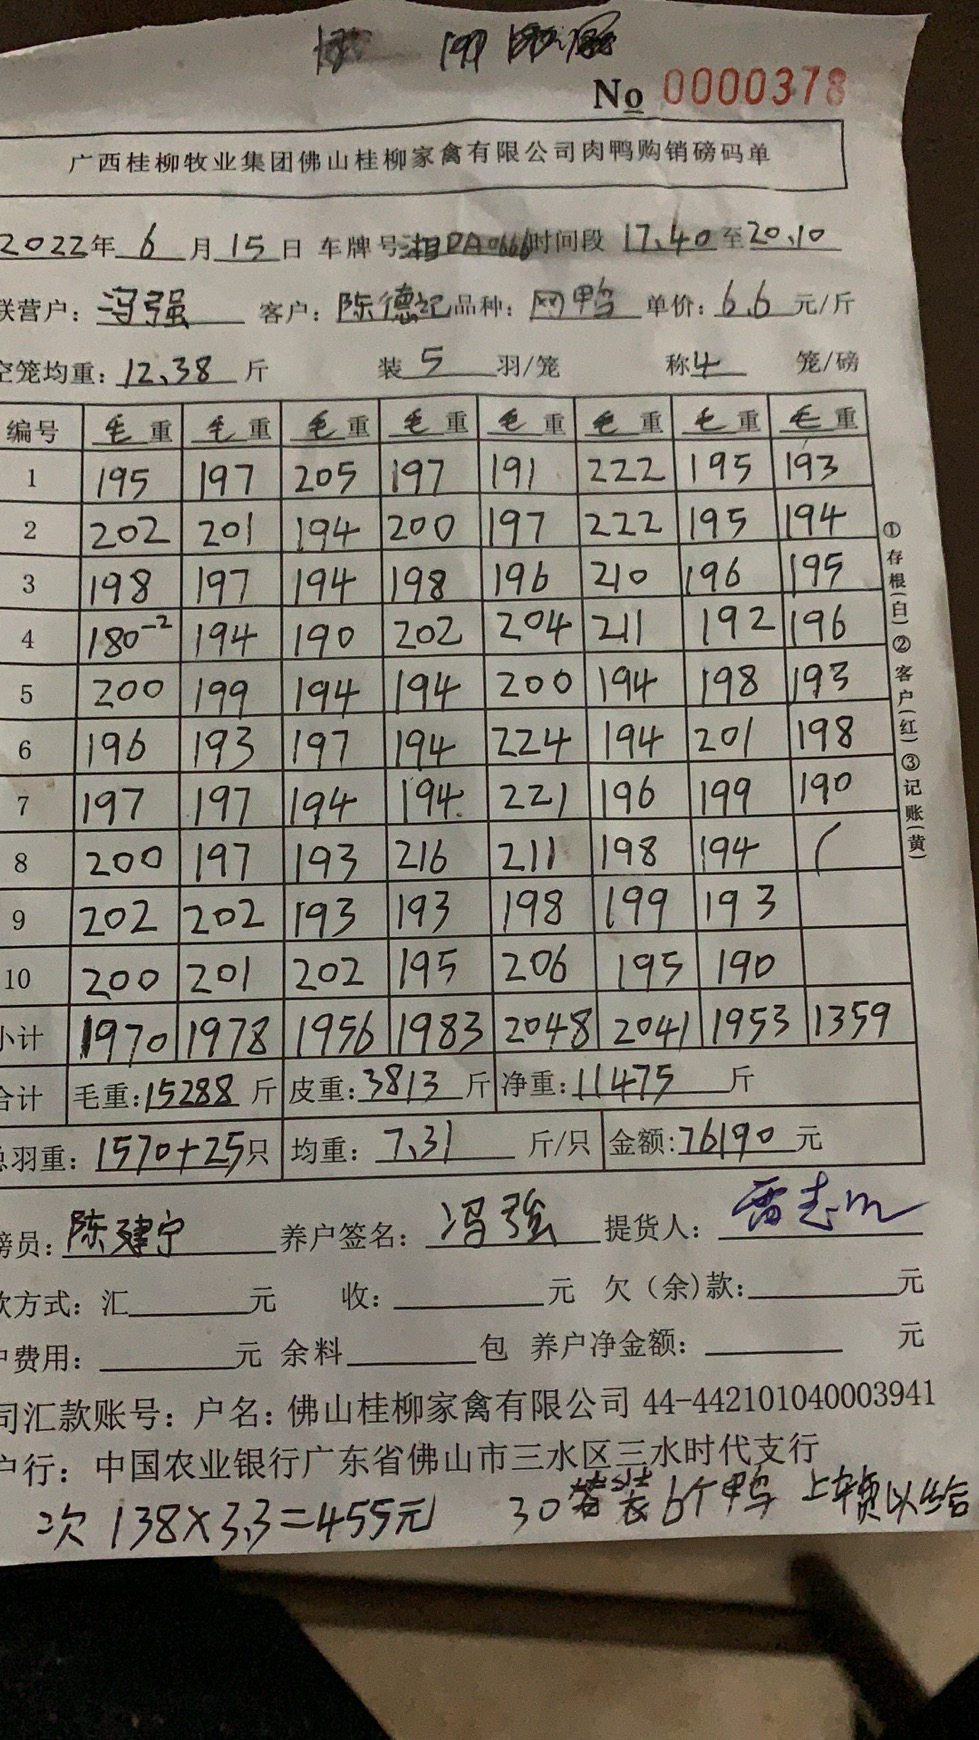 No 0000378
广西桂柳牧业集团佛山桂柳家禽有限公司肉鸭购销磅码单
2022年 6 月 15 日 车牌号 时间段 17.40 至 20.10
联营户: 冯强 客户: 陈德记 品种: 网鸭 单价: 6.6 元/斤
空笼均重: 12.38 斤 装 5 羽/笼 称 4 笼/磅
编号 毛重 毛重 毛重 毛重 毛重 毛重 毛重 毛重
1 195 197 205 197 191 222 195 193
2 202 201 194 200 197 222 195 194
3 198 197 194 198 196 210 196 195
4 180-2 194 190 202 204 211 192 196
5 200 199 194 194 200 194 198 193
6 196 193 197 194 224 194 201 198
7 197 197 194 194 221 196 199 190
8 200 197 193 216 211 198 194
9 202 202 193 193 198 199 193
10 200 201 202 195 206 195 190
小计 1970 1978 1956 1983 2048 2041 1953 1359
合计 毛重: 15288 斤 皮重: 3813 斤 净重: 11475 斤
总羽重: 1570+25只 均重: 7.31 斤/只 金额: 76190 元
磅员: 陈建宁 养户签名: 冯强 提货人:
款方式: 汇 元 收: 元 欠(余)款: 元
户费用: 元 余料 包 养户净金额: 元
司汇款账号: 户名: 佛山桂柳家禽有限公司 44-442101040003941
户行: 中国农业银行广东省佛山市三水区三水时代支行
二次 138×3.3=455元 30 装6个鸭
①存根(白)②客户(红)③记账(黄)